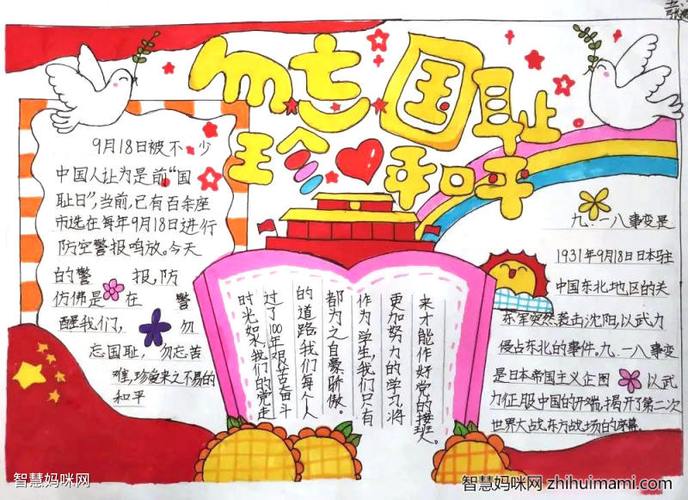 勿忘国耻
珍和平
9月18日被不少
中国人认为是前“国
耻日”,当前,已有百余座
市选在每年9月18日进行
防空警报鸣放。今天
的警 报,防
仿佛是 在 警
醒我们, 勿
忘国耻, 勿忘苦
难,珍爱来之不易的
和平
时光如 我们的党走
过了100年艰苦奋斗
的道路我们每个人
都为之自豪骄傲。
作为学生,我们只有
更加努力的学习,将
来才能作好党的接班人
九.一八事变是
1931年9月18日日本驻
中国东北地区的关
东军突然袭击沈阳,以武力
侵占东北的事件。九.一八事变
是日本帝国主义企图 以武
力征服中国的开端,揭开了第二次
世界大战东方战场的序幕.
智慧妈咪网
智慧妈咪网 zhihuimami.com